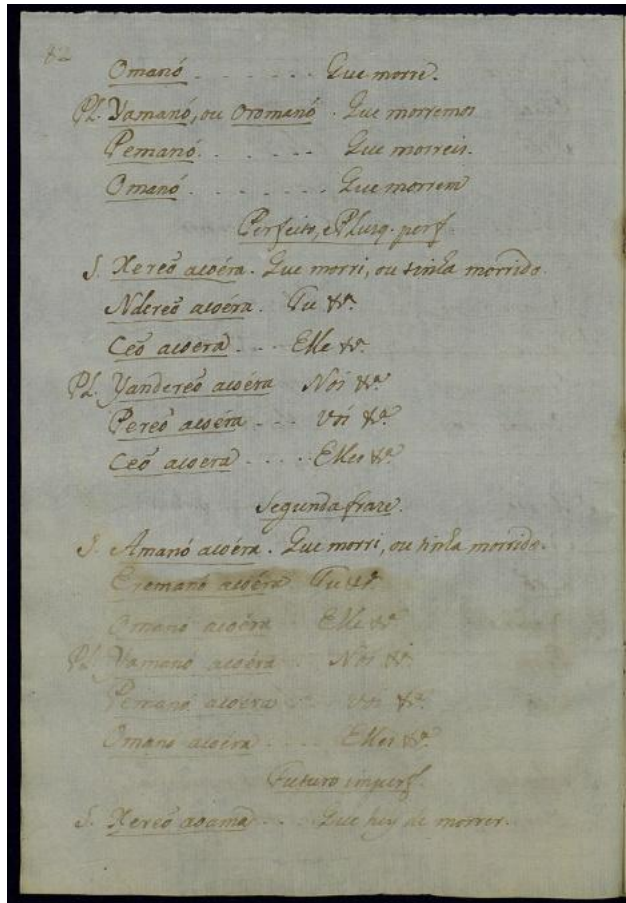 82
Omanó . . . . . . . Que morre.
Pl. Yamanó, ou Oromanó . Que morremos
Pemanó . . . . . . Que morreis.
Omanó . . . . . . . Que morrem
Perfeito, e Plusq. perf
S. Xereõ aɩoéra . Que morri, ou tinha morrido.
Ndereõ aɩoéra . Tu &ª.
Ceõ aɩoera . . . Elle &ª.
Pl. Yandereõ aɩoéra Nós &ª.
Pereõ aɩoéra . . . vós &ª.
Ceõ aɩoera . . . . Elles &ª.
Segunda fraze.
S. Amanó aɩoéra . Que morri, ou tinha morrido.
Eremanó aɩoéra Tu &ª.
Omanó aɩoéra Elle &ª.
Pl. Yamanó aɩoéra Nós &ª.
Pemanó aɩoéra vós &ª.
Omano aɩoéra . . . Elles &ª.
Futuro imperf.
S. Xereõ aoama . . . Que hey de morrer.